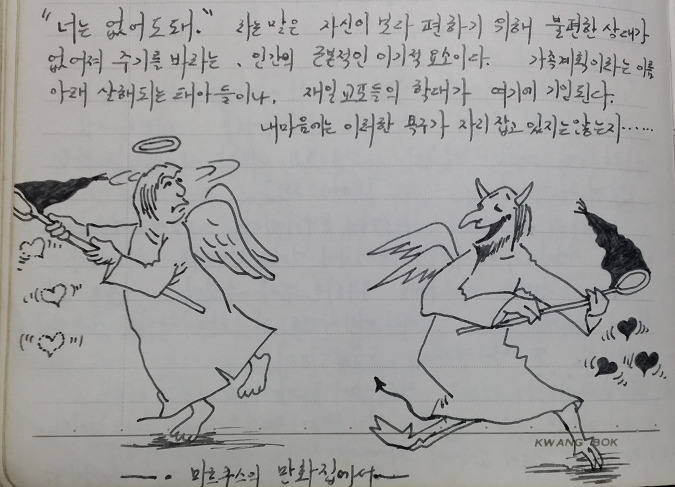 "너는 없어도 돼." 라는 말은 자신이 보다 편하기 위해 불편한 상대가
없어져 주기를 바라는, 인간의 근본적인 이기적 요소이다. 가족계획이라는 이름
아래 살해되는 태아들이나, 재일교포들의 학대가 여기에 기인된다.
내마음에는 이러한 욕구가 자리잡고 있지는않는지......
KWANG BOK
—. 마르쿠스의 만화집에서—